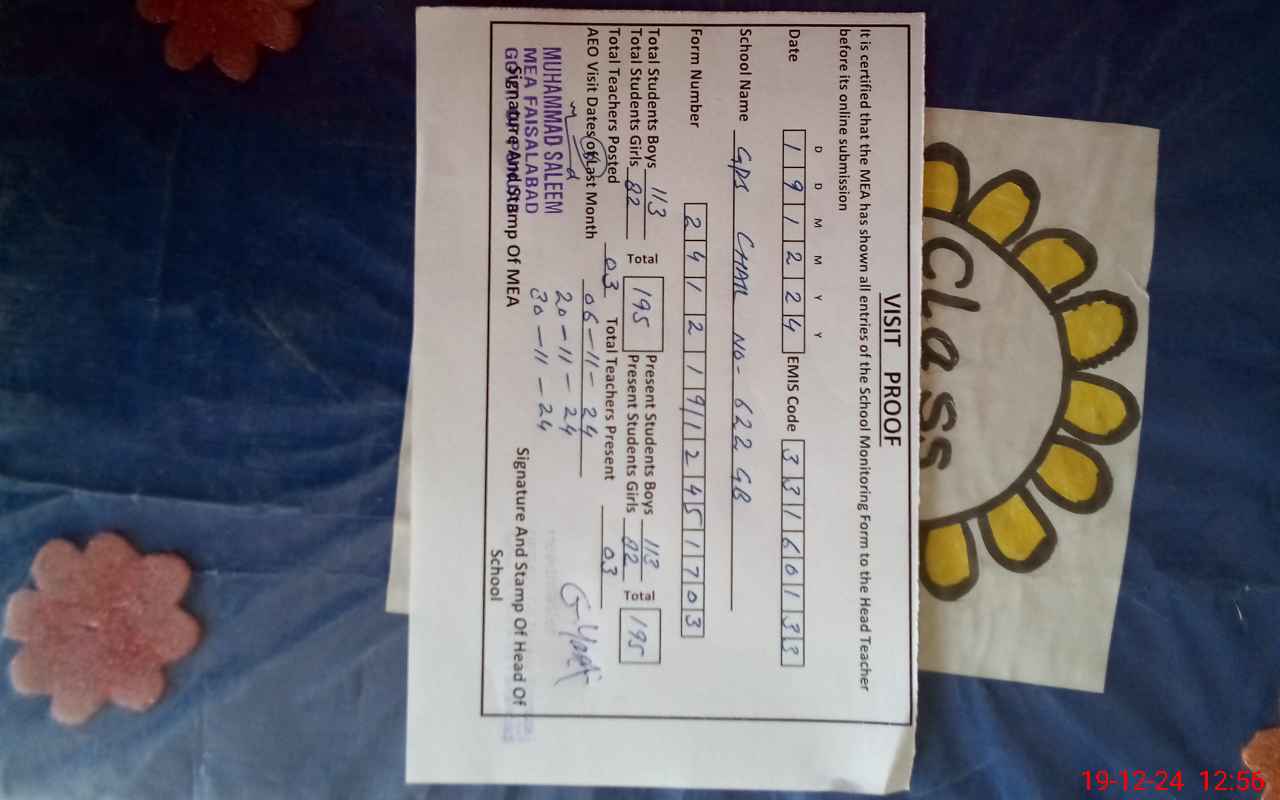 VISIT PROOF
It is certified that the MEA has shown all entries of the School Monitoring Form to the Head Teacher
before its online submission
D D M M Y Y
Date 1 9 1 2 2 4 EMIS Code 3 3 1 6 0 1 3 3
School Name GPS CHAK NO- 622 GB
Form Number 2 4 1 2 1 9 1 2 4 5 1 7 0 3
Total Students Boys 113 Total 195 Present Students Boys 113 Total 195
Total Students Girls 82 Present Students Girls 82
Total Teachers Posted 03 Total Teachers Present 03
AEO Visit Dates of Last Month 06-11-24
20-11-24
30-11-24
MUHAMMAD SALEEM
MEA FAISALABAD
Signature And Stamp Of MEA
Signature And Stamp Of Head Of
School
Class
19-12-24 12:56